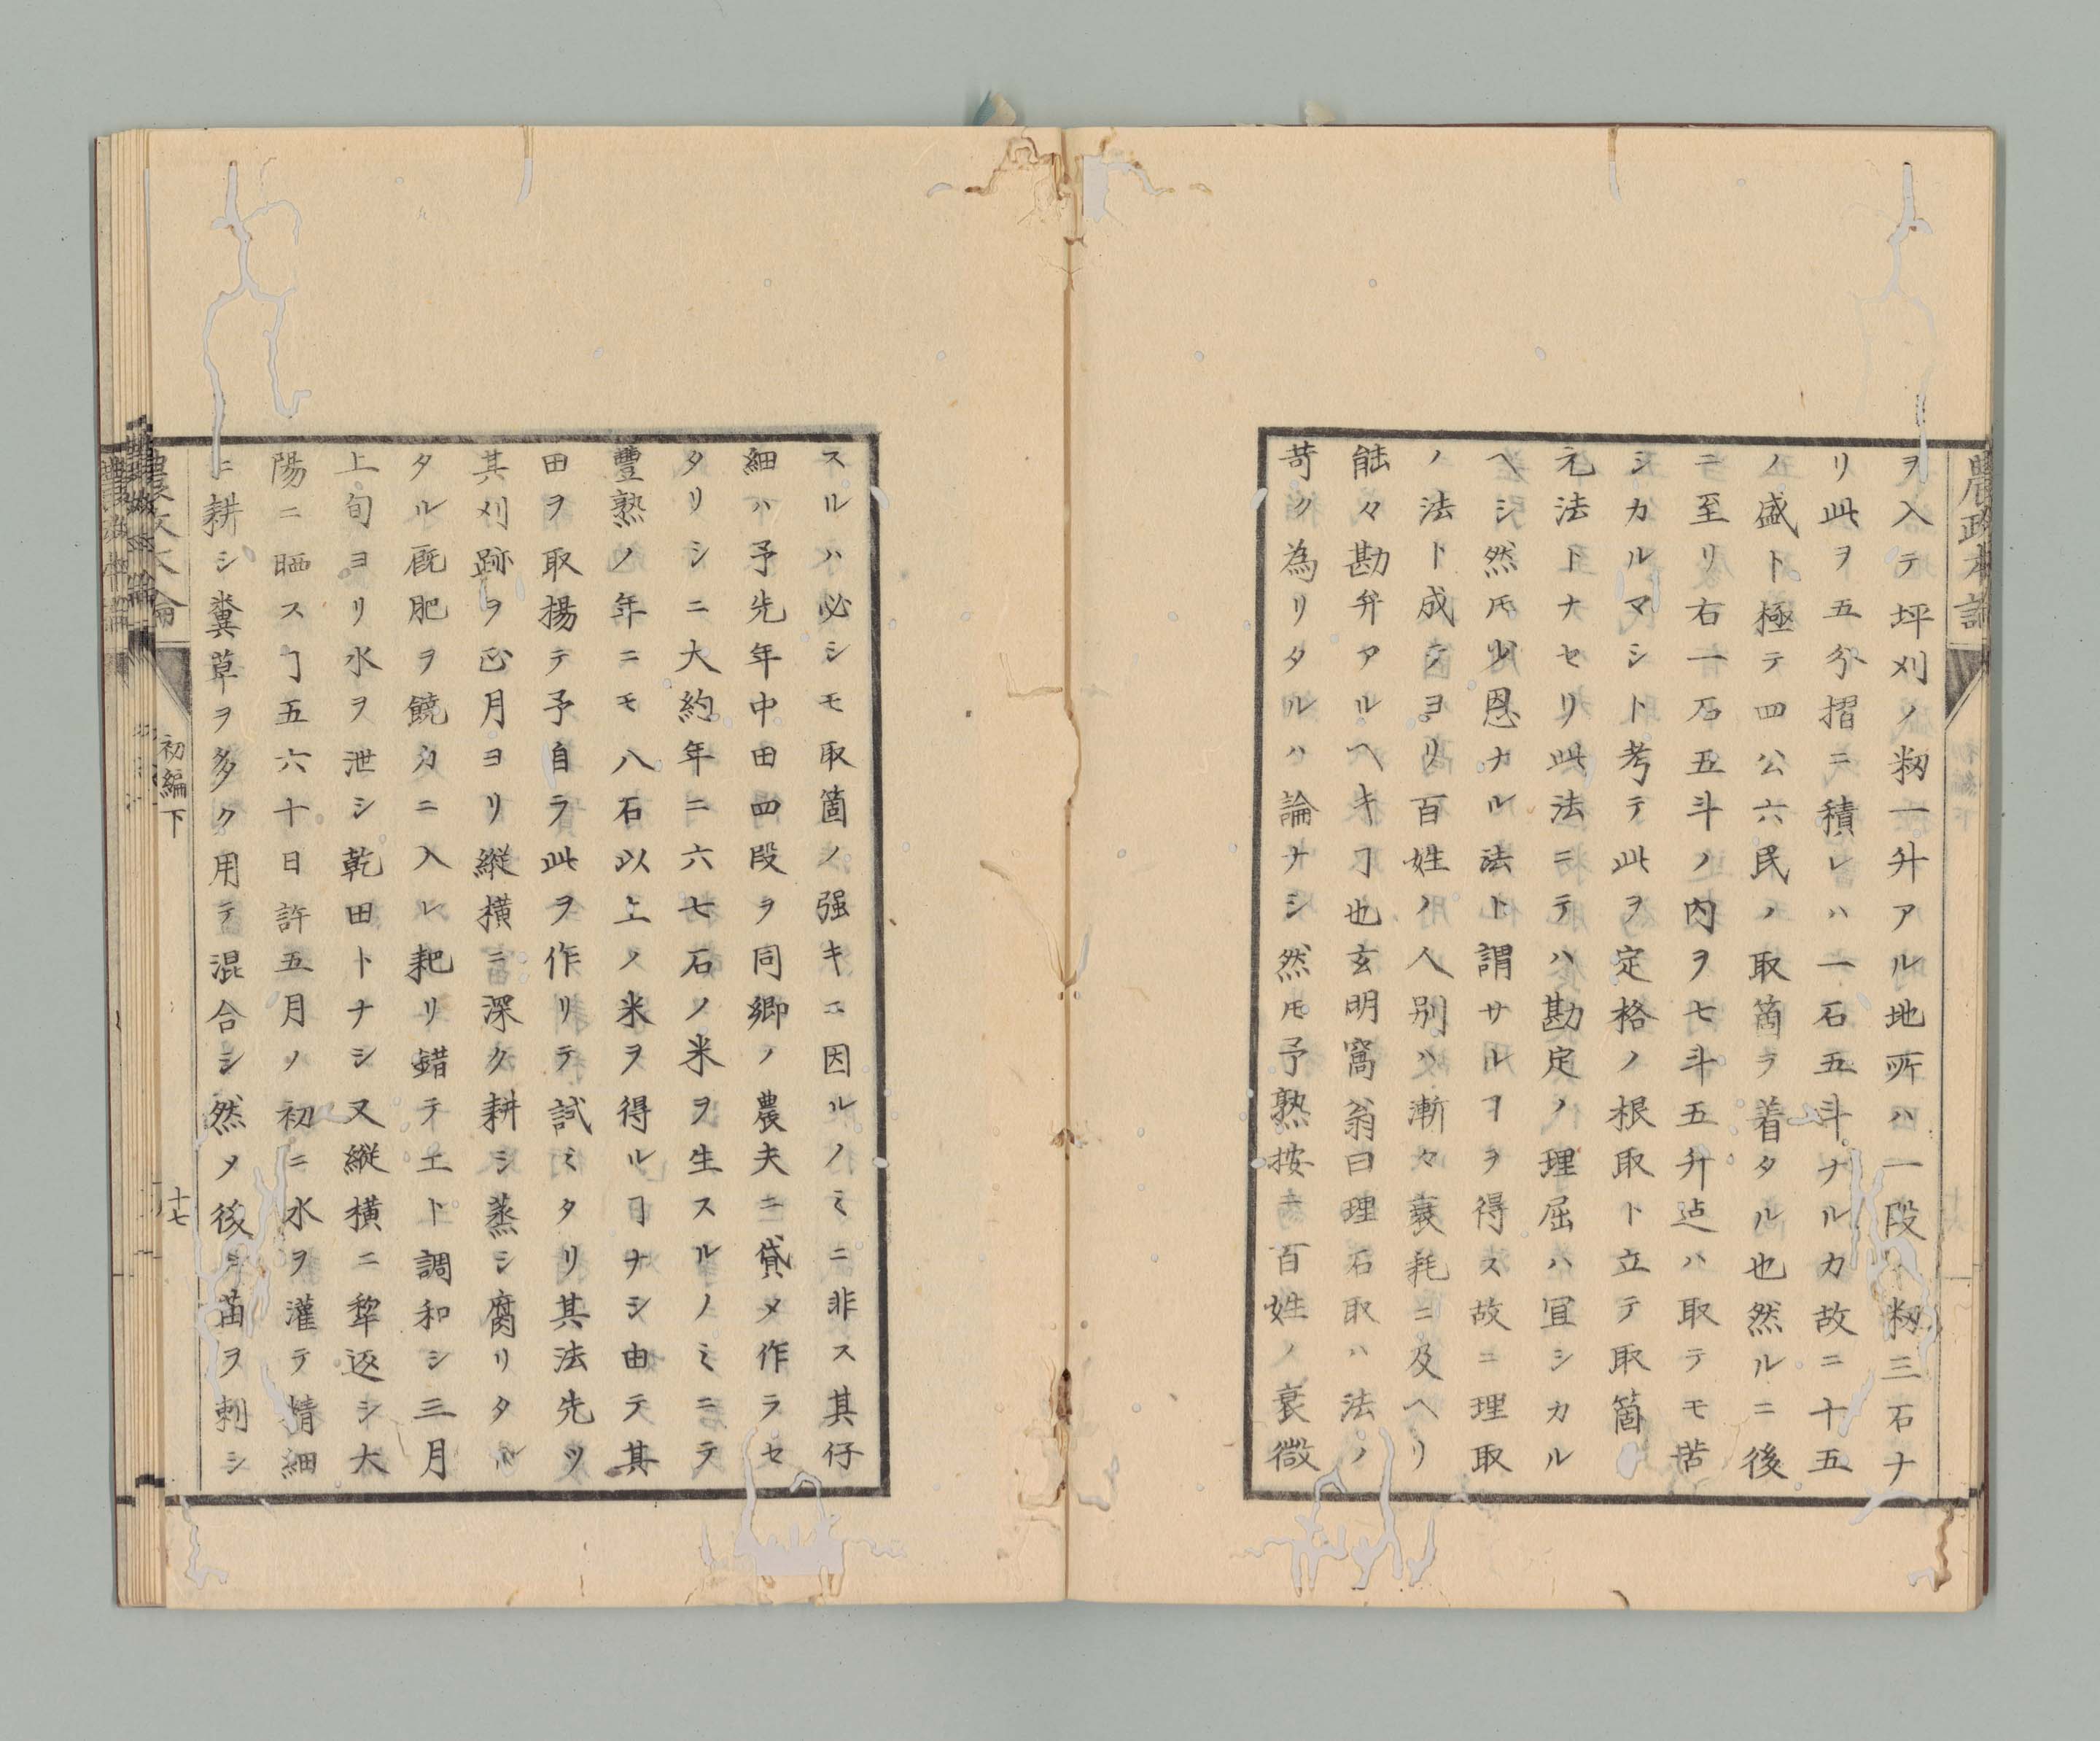 農政本論
ヲ入テ坪刈ノ籾一升アル地所ハ一段ノ籾三石ナ
リ此ヲ五分摺ニ積レハ一石五斗ナルカ故ニ十五
ノ盛ト極テ四公六民ノ取箇ヲ着タル也然ルニ後
ニ至リ右一石五斗ノ内ヲ七斗五升迠ハ取テモ苦
シカルマシト考テ此ヲ定格ノ根取ト立テ取箇ノ
元法トナセリ此法ニテハ勘定ノ理屈ハ冝シカル
ヘシ然𪜈少恩ナル法ト謂サルヿヲ得ス故ニ理取
ノ法ト成テヨリ百姓ノ人別ハ漸々衰耗ニ及ヘリ
能々勘弁アルヘキヿ也玄明窩翁曰理石取ハ法ノ
苛ク為リタルハ論ナシ然𪜈予熟按ニ百姓ノ衰微
スルハ必シモ取箇ノ强キニ因ルノミニ非ス其仔
細ハ予先年中田四段ヲ同郷ノ農夫ニ貸メ作ラセ
タリシニ大約年ニ六七石ノ米ヲ生スルノミニテ
豐熟ノ年ニモ八石以上ノ米ヲ得ルヿナシ由テ其
田ヲ取揚テ予自ラ此ヲ作リテ試ミタリ其法先ツ
其刈跡ヲ正月ヨリ縦横ニ深ク耕シ蒸シ腐リタル
タル厩肥ヲ饒カニ入レ耙リ錯テ土ト調和シ三月
上旬ヨリ水ヲ泄シ乾田トナシ又縦横ニ犂返シ大
陽ニ晒スヿ五六十日許五月ノ初ニ水ヲ灌テ精細
ニ耕シ糞草ヲ多ク用テ混合シ然メ後ニ苗ヲ刺シ
農政本論
初編下
十七